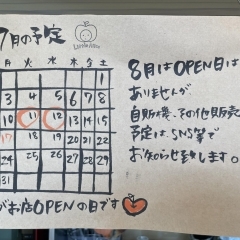 7月の予定
月 火 水 木 金 土
1
3 4 5 6 7 8
10 11 12 13 14 15
17 18 19 20 21 22
24 25 26 27 28 29
31
がお店OPENの日です
8月はOPEN日は
ありませんが
自販機、その他販売
予定は、SNS等で
お知らせ致します。